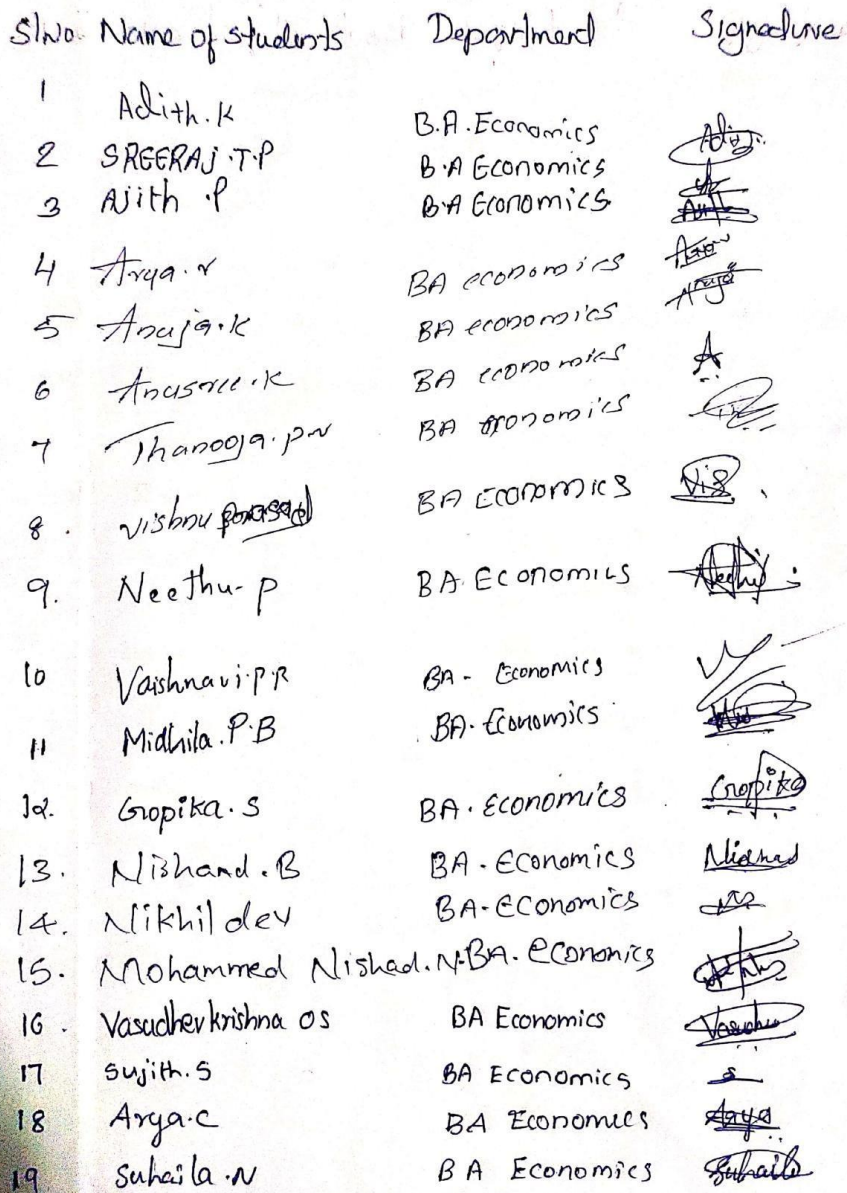 Sl No. Name of students Department Signature
1 Adith.K B.A. Economics
2 SREERAJ.T.P B.A Economics
3 Ajith .P B.A Economics
4 Arya.v BA economics Arya
5 Anuja.K BA economics Anuja
6 Anusree.K BA economics A
7 Thanooja.p.v BA economics
8. vishnu prasad BA Economics Vis
9. Neethu-p BA Economics Neethu
10 Vaishnavi.P.R BA - Economics
11 Midhila.P.B BA. Economics
12. Gopika.S BA. Economics Gopika
13. Nishand.B BA. Economics
14. Nikhil dev BA. Economics
15. Mohammed Nishad.N. BA. economics
16. Vasudhev krishna OS BA Economics Vasudev
17 Sujith.S BA Economics s
18 Arya.C BA Economics Arya
19 Suhaila.N BA Economics Suhaila